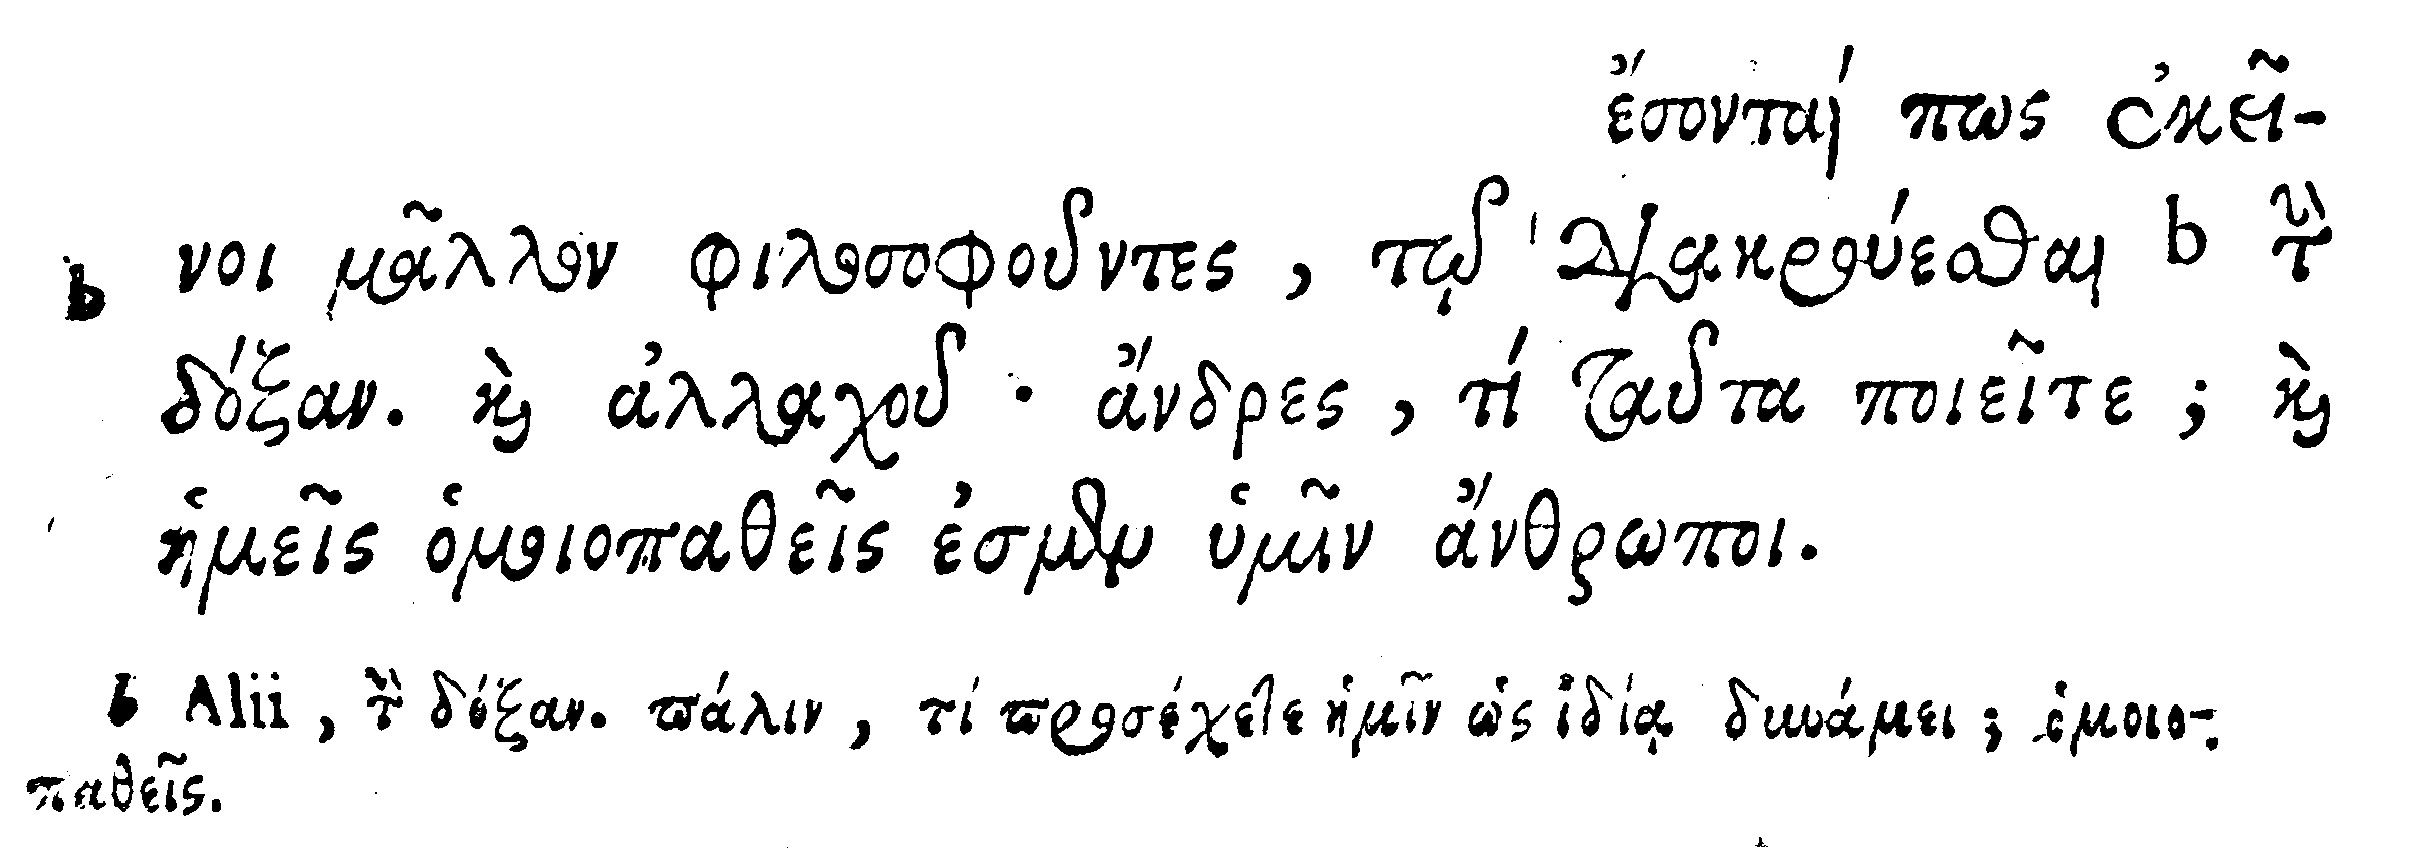 ἔσονταί πως ἐκεῖ-
b νοι μᾶλλον φιλοσοφοῦντες, τῷ διακρούεσθαι b τὴν
δόξαν. καὶ ἀλλαχοῦ · ἄνδρες, τί ταῦτα ποιεῖτε; καὶ
ἡμεῖς ὁμοιοπαθεῖς ἐσμὲν ὑμῖν ἄνθρωποι.
b Alii, τὴν δόξαν. πάλιν, τί προσέχετε ἡμῖν ὡς ἰδίᾳ δυνάμει; ὁμοιο-
παθεῖς.